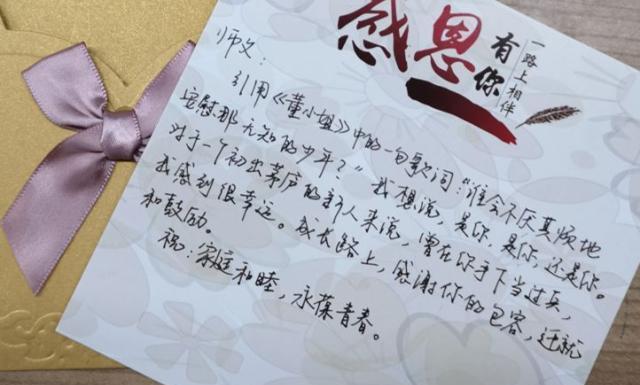 感恩有你
一路上相伴
师父:
引用《董小姐》中的一句歌词:“谁会不厌其烦地
安慰那无知的少年?”我想说,是你,是你,还是你。
对于一个初出茅庐的新人来说,曾在你手下当过兵,
我感到很幸运。成长路上,感谢你的包容,迁就
和鼓励。
祝:家庭和睦,永葆青春。